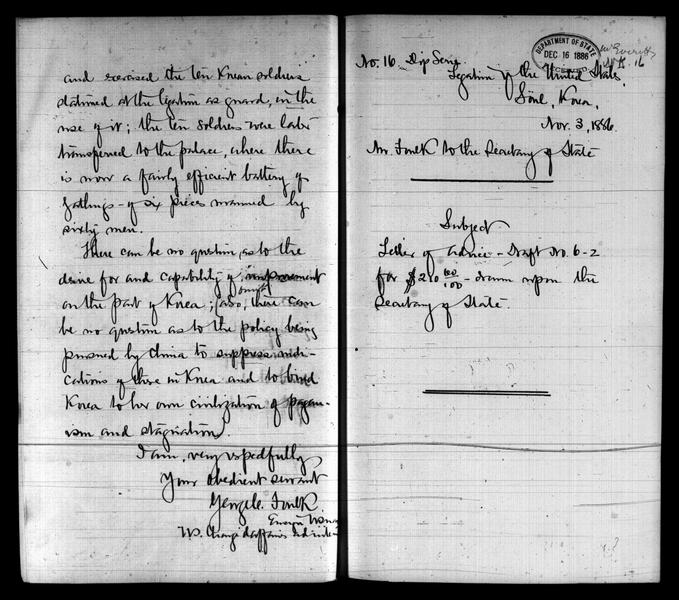 and exercised the ten Korean soldiers
stationed at the Legation as guard, in the
use of it; the ten soldiers were later
transferred to the palace, where there
is now a fairly efficient battery of
Gatlings - of six pieces manned by
sixty men.
There can be no question as to the
desire for and capability of improvement
on the part of Korea; (also, there can
be no question as to the policy being
pursued by China to suppress indi-
cations of these in Korea and to bind
Korea to her own civilization of pagan-
ism and stagnation).
I am, very respectfully
Your obedient servant
George C. Foulk
Ensign U.S. Navy
U.S. Chargé d'affaires ad interim
DEPARTMENT OF STATE
DEC 16 1886
No. 16. Dip Series
Legation of the United States,
Söul, Korea,
Nov. 3, 1886.
Mr. Foulk to the Secretary of State
Subject
Letter of advice - Draft No. 6-2
for $210 00/100 - drawn upon the
Secretary of State.